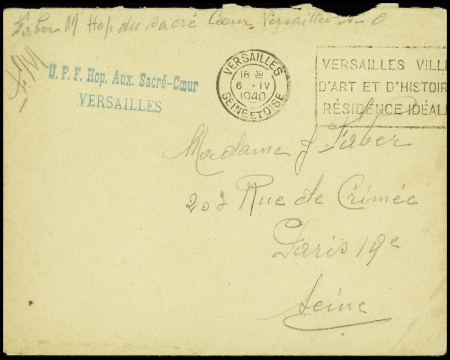 Faber M Hop. du Sacré Coeur Versailles S. O
F.M
U. F. F. Hop. Aux. Sacré-Cœur
VERSAILLES
VERSAILLES
18 30
6 - IV
1940
SEINE ET OISE
VERSAILLES VILL
D'ART ET D'HISTOIR
RÉSIDENCE IDÉAL
Madame J Faber
207 Rue de Crimée
Paris 19e
Seine